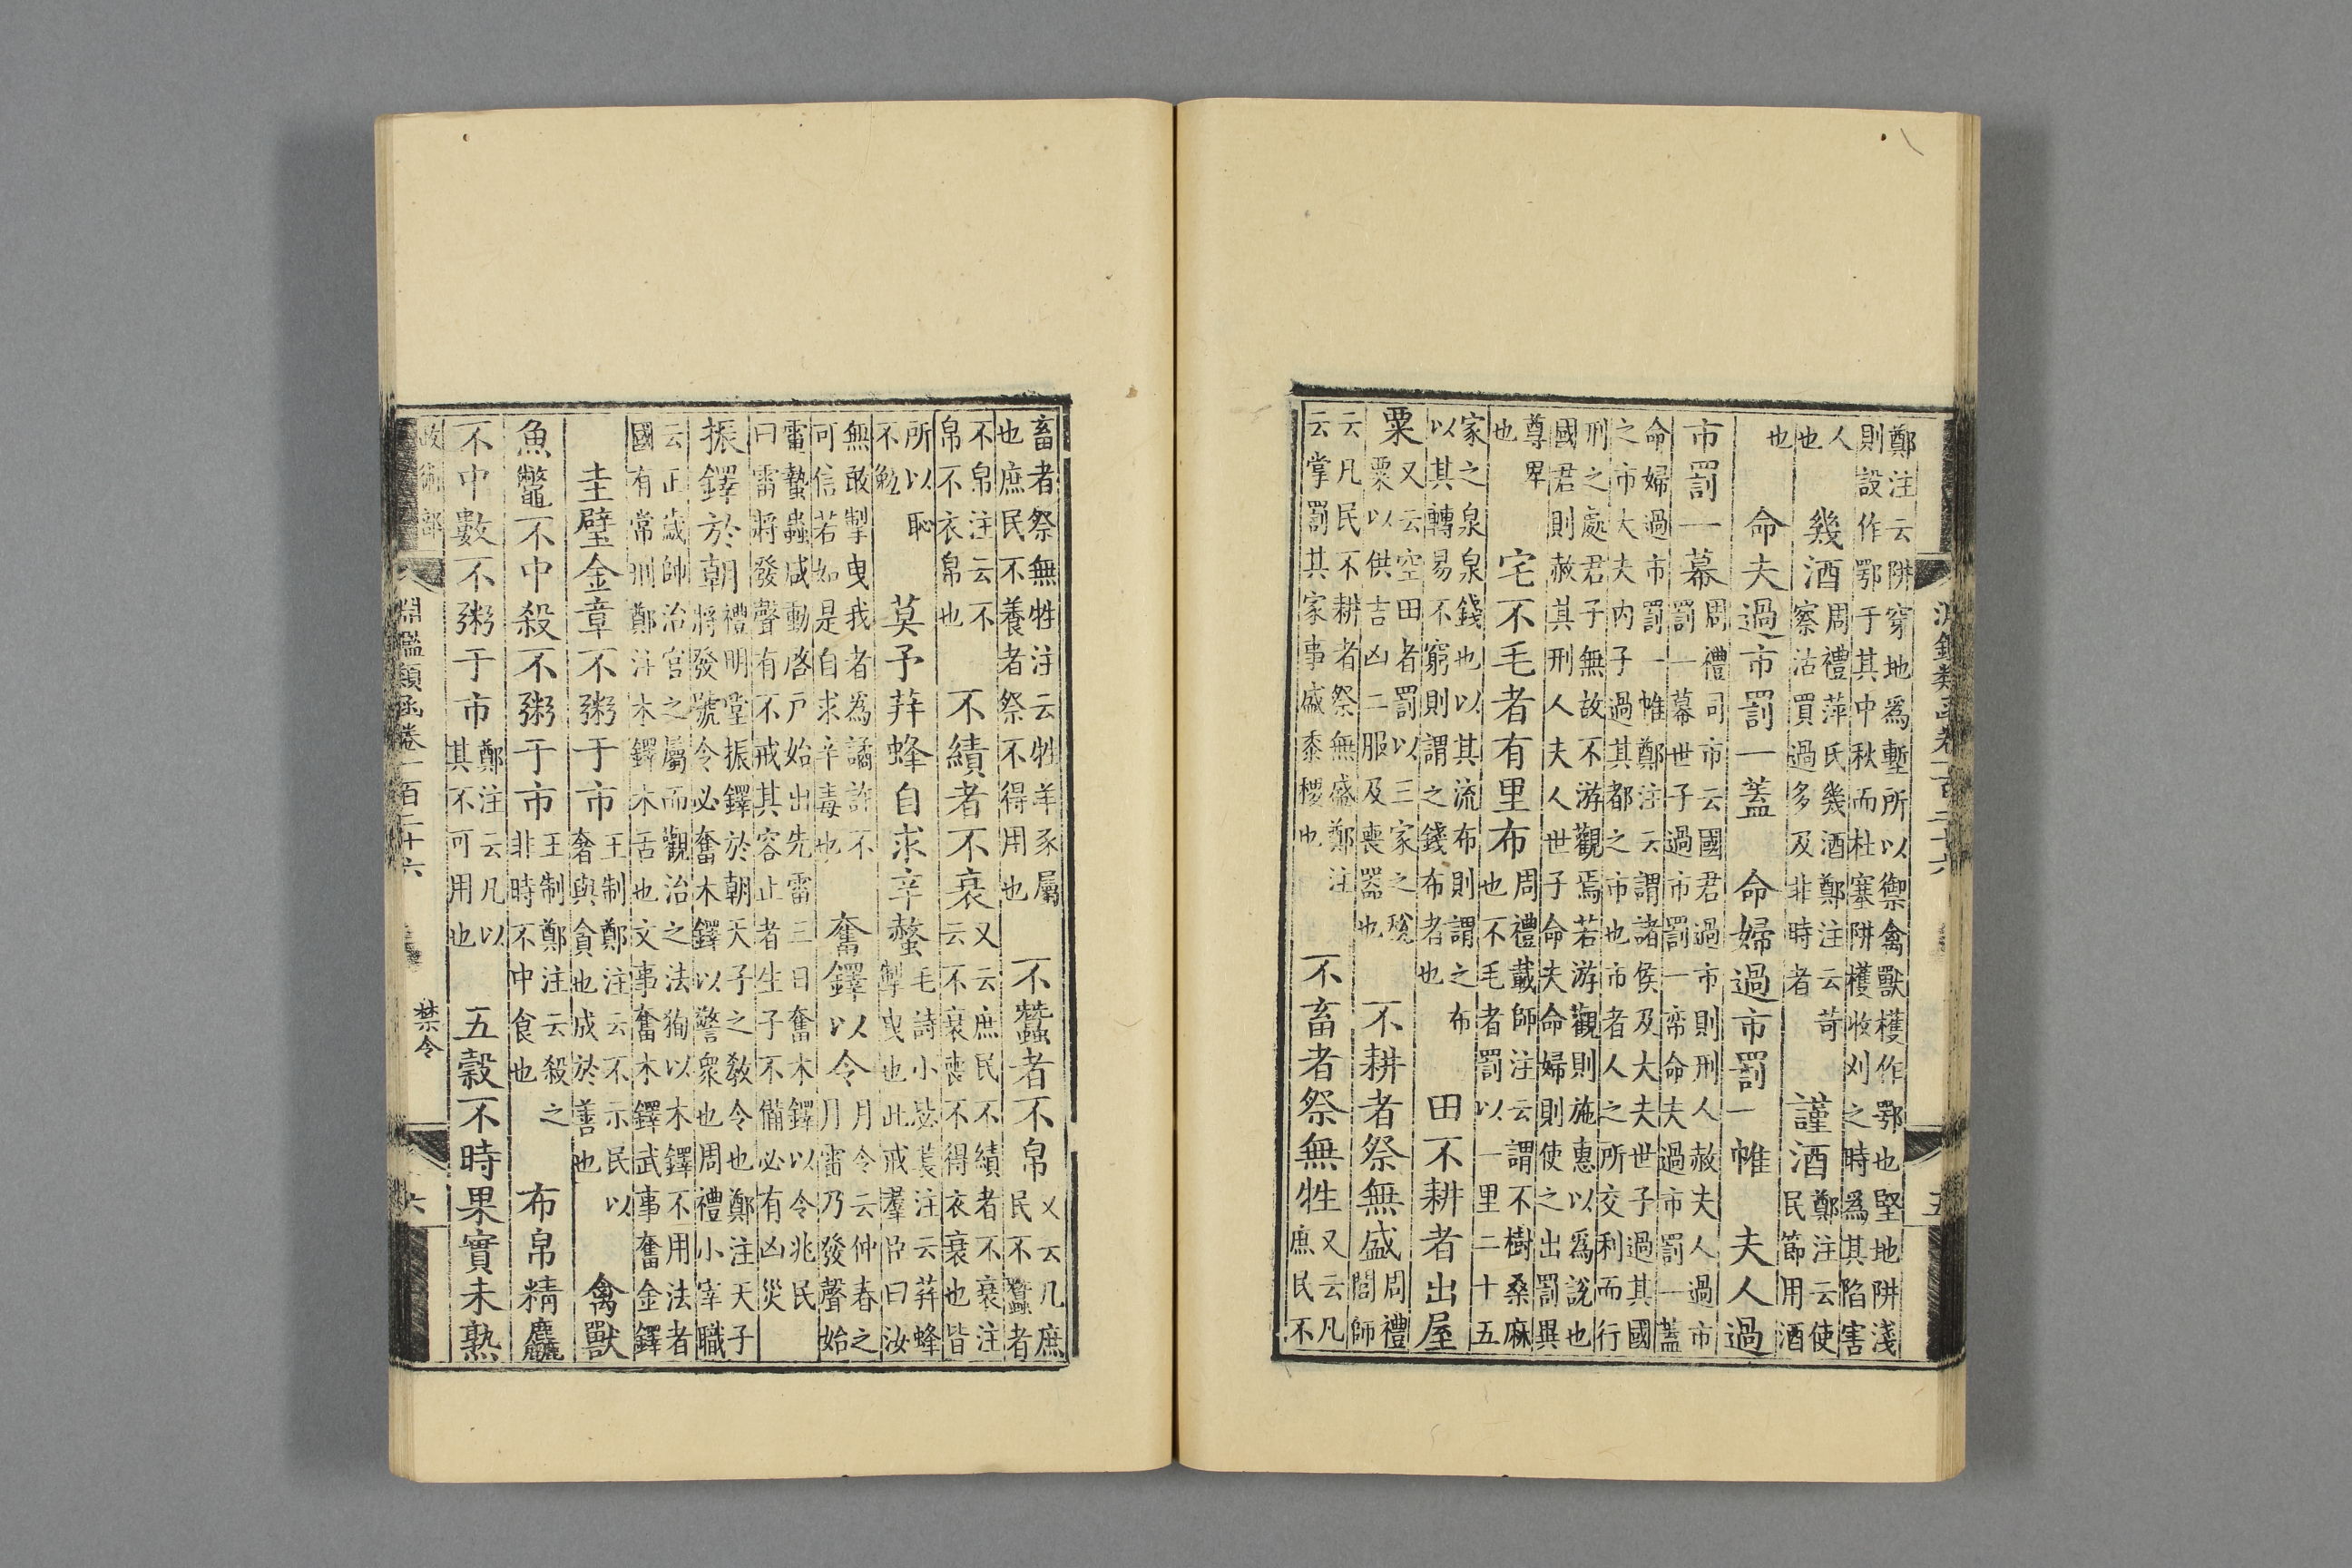 鄭注云阱穿地爲塹所以禦禽獸檴作鄂也堅地阱淺
則設作鄂于其中秋而杜塞阱檴收刈之時爲其陷害
人也　幾酒　周禮萍氏幾酒鄭注云苛察沽買過多及非時者　謹酒　鄭注云使民節用酒
也　命夫過市罰一蓋　命婦過市罰一帷　夫人過
市罰一幕　周禮司市云國君過市則刑人赦夫人過市罰一幕世子過市罰一帟命夫過市罰一蓋
命婦過市罰一帷鄭注云謂諸侯及大夫世子過其國
之市大夫內子過其都之市也市者人之所交利而行
刑之處君子無故不游觀焉若游觀則施惠以爲說也
國君則赦其刑人夫人世子命夫命婦則使之出罰異
尊卑也　宅不毛者有里布　周禮載師注云謂不樹桑麻也不毛者罰以一里二十五
家之泉泉錢也以其流布則謂之布以其轉易不窮則謂之錢布者也　田不耕者出屋
粟　又云空田者罰以三家之稅粟以供吉凶二服及喪器也　不耕者祭無盛　周禮閭師
云凡民不耕者祭無盛鄭注云掌罰其家事盛黍稷也　不畜者祭無牲　又云凡庶民不
淵鑑類函卷一百二十六　五
畜者祭無牲注云牲羊豕屬也庶民不養者祭不得用也　不蠶者不帛　又云凡庶民不蠶者
不帛注云不帛不衣帛也　不績者不衰　又云庶民不績者不衰注云不衰喪不得衣衰也皆
所以恥不勉　莫予荓蜂自求辛螫　毛詩小毖箋注云荓蜂掣曳也此戒羣臣曰汝
無敢掣曳我者爲譎詐不可信若如是自求辛毒也　奮鐸以令　月令云仲春之月雷乃發聲始
雷蟄蟲咸動啓戶始出先雷三日奮木鐸以令兆民
曰雷將發聲有不戒其容止者生子不備必有凶災
振鐸於朝　禮明堂振鐸於朝天子之教令也鄭注天子將發號令必奮木鐸以警衆也周禮小宰職
云正歲帥治官之屬而觀治之法狥以木鐸不用法者
國有常刑鄭注木鐸木舌也文事奮木鐸武事奮金鐸
圭璧金章不粥于市　王制鄭注云不示民以奢與貪也成於善也　禽獸
魚鼈不中殺不粥于市　王制鄭注云殺之非時不中食也　布帛精麤
不中數不粥于市　鄭注云凡以其不可用也　五穀不時果實未熟
淵鑑類函卷一百二十六　禁令　六